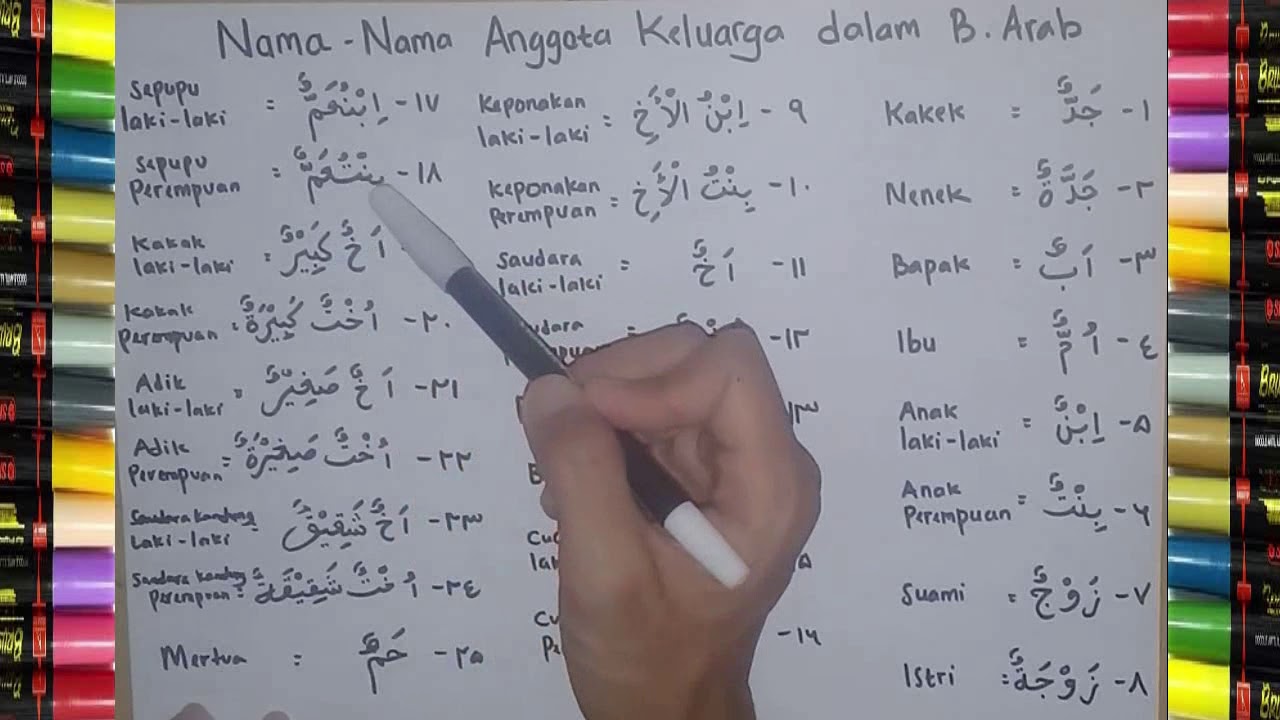 Nama-Nama Anggota Keluarga dalam B. Arab
١- جَدٌّ = Kakek
٢- جَدَّةٌ = Nenek
٣- اَبٌ = Bapak
٤- اُمٌّ = Ibu
٥- اِبْنٌ = Anak
laki-laki
٦- بِنْتٌ = Anak
Perempuan
٧- زَوْجٌ = Suami
٨- زَوْجَةٌ = Istri
٩- اِبْنُ الْأَخِ = Keponakan
laki-laki
١٠- بِنْتُ الْأَخِ = Keponakan
Perempuan
١١- اَخٌ = Saudara
laki-laki
-١٢
١٣
-١٦
١٧- اِبْنُ عَمٍّ = Sepupu
laki-laki
١٨- بِنْتُ عَمٍّ = Sepupu
Perempuan
اَخٌ كَبِيْرٌ = Kakak
laki-laki
٢٠- اُخْتٌ كَبِيْرَةٌ = Kakak
Perempuan
٢١- اَخٌ صَغِيْرٌ = Adik
laki-laki
٢٢- اُخْتٌ صَغِيْرَةٌ = Adik
Perempuan
٢٣- اَخٌ شَقِيْقٌ = Saudara kandung
Laki-laki
٢٤- اُخْتٌ شَقِيْقَةٌ = Saudara kandung
perempuan
٢٥- حَمٌ = Mertua